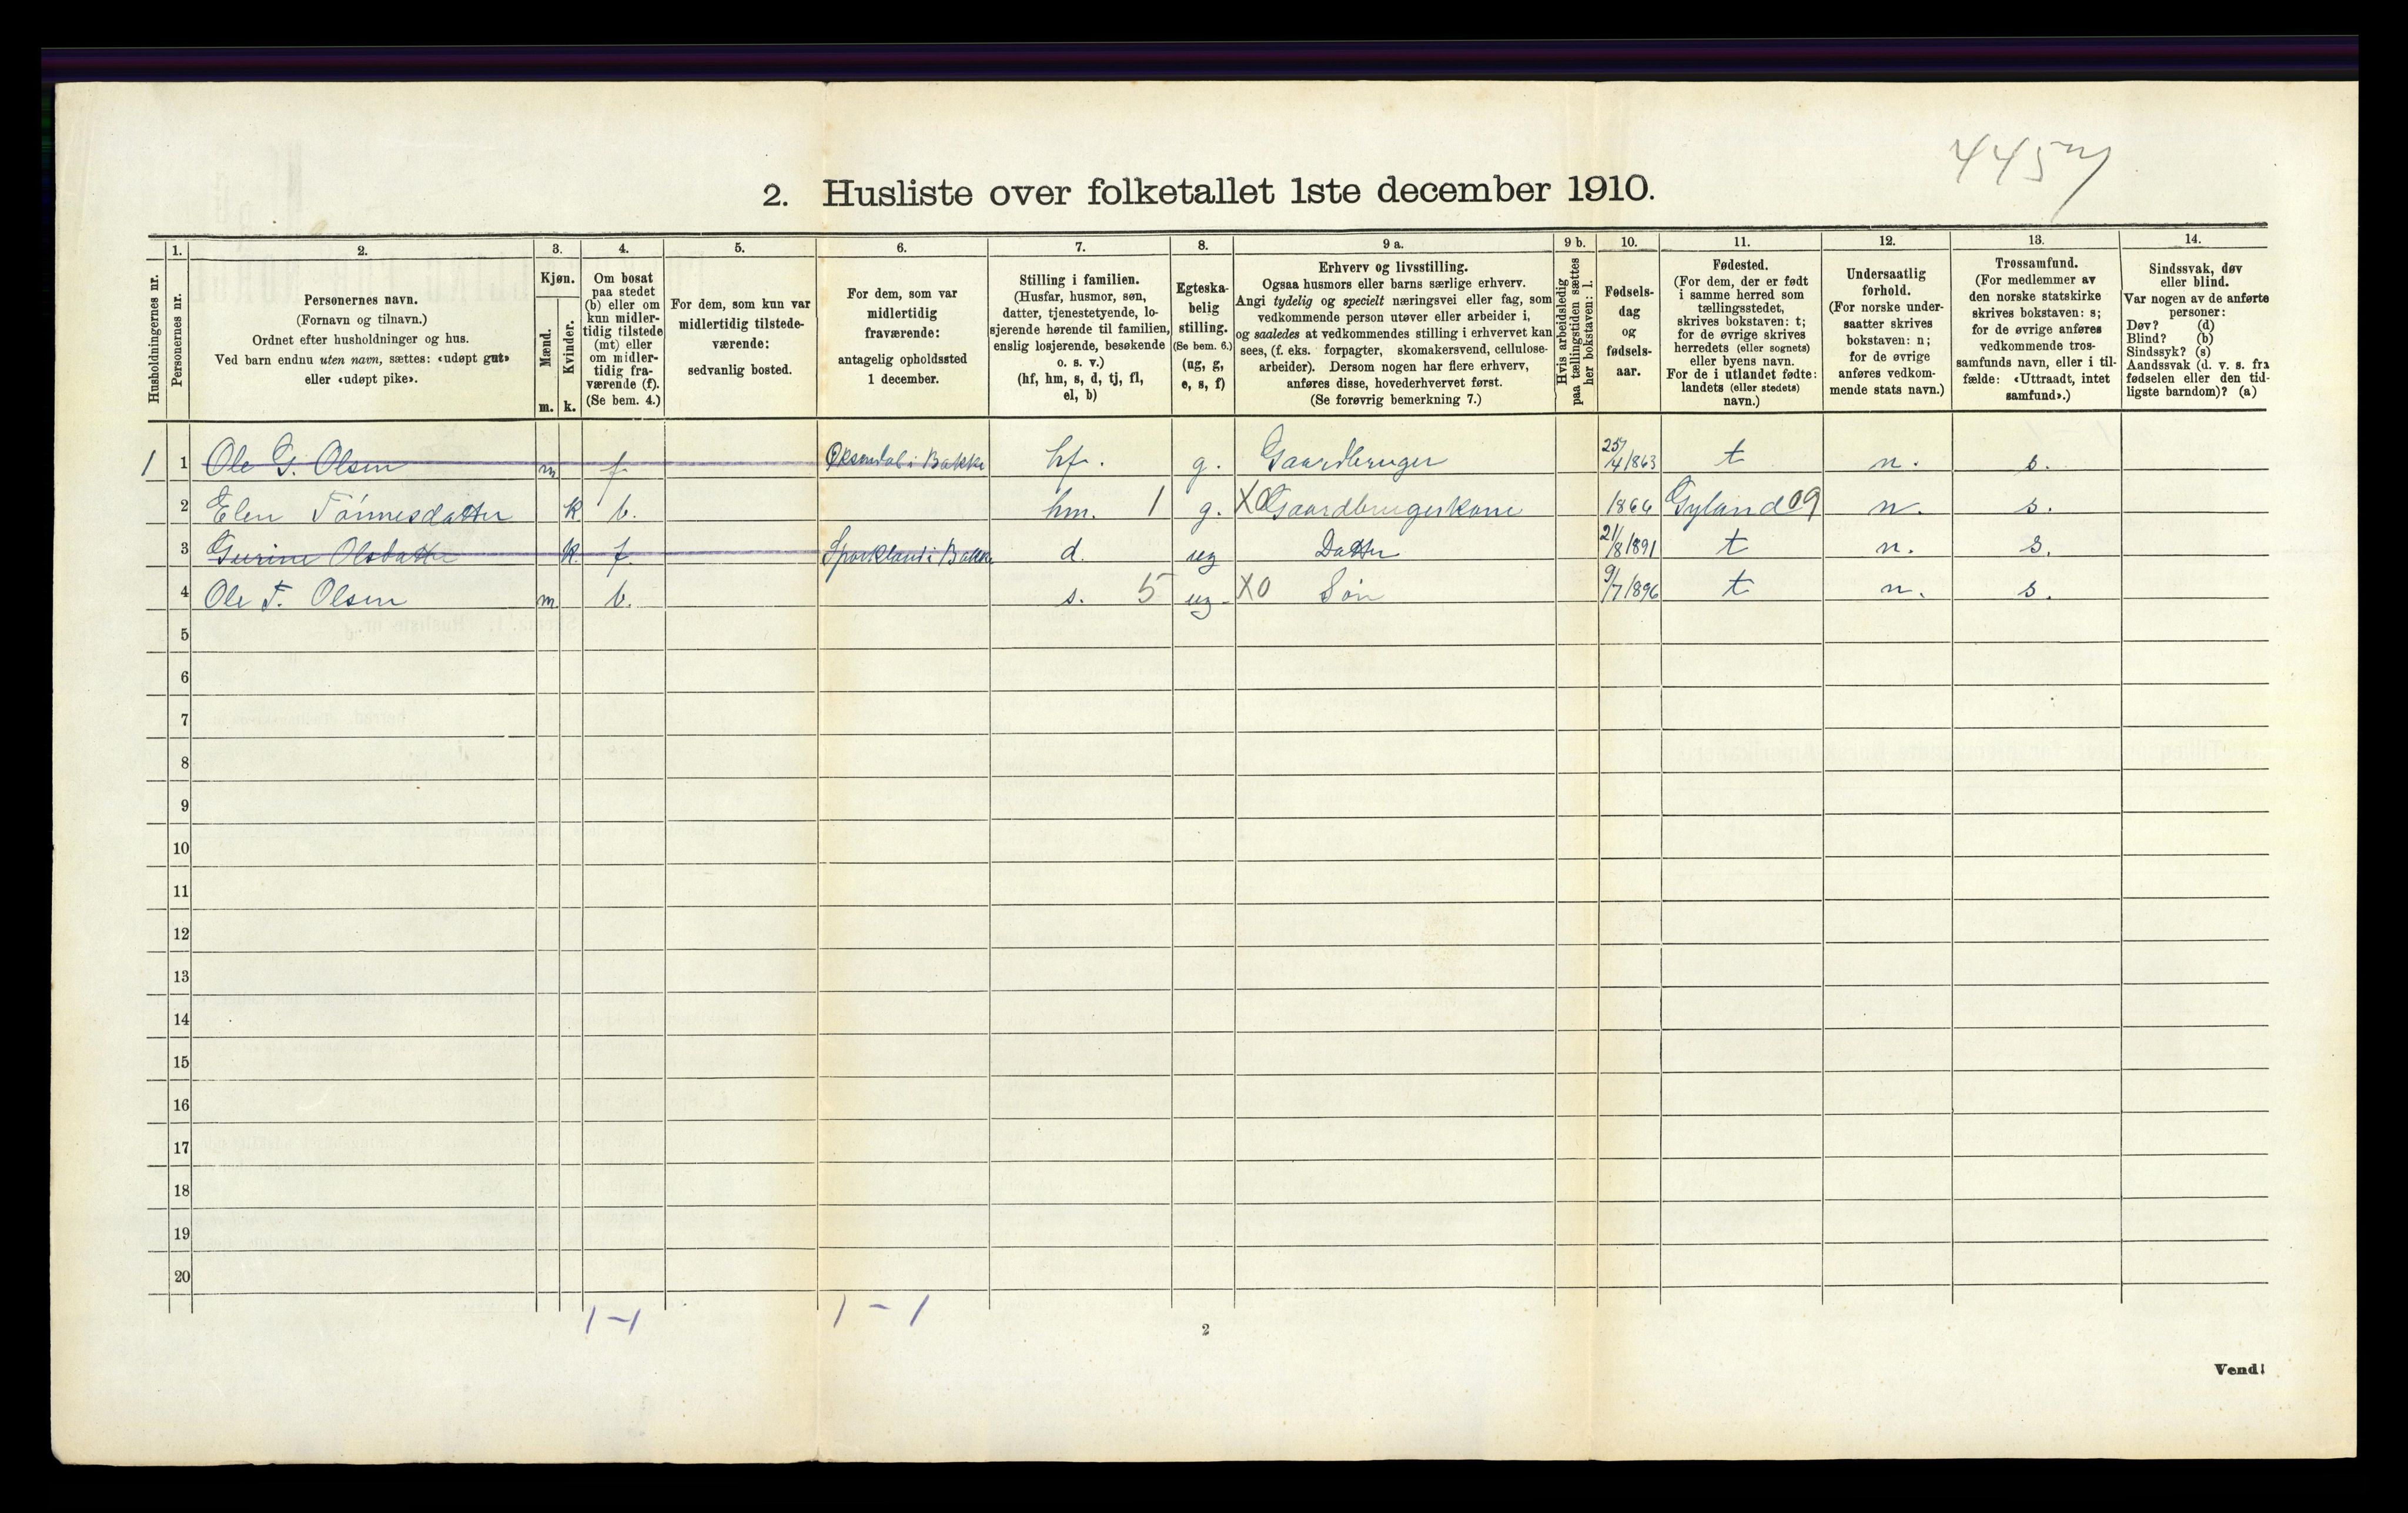 4457
2. Husliste over folketallet 1ste december 1910.
Husholdningernes nr.
1.
Personernes nr.
2.
Personernes navn.
(Fornavn og tilnavn.)
Ordnet efter husholdninger og hus.
Ved barn endnu uten navn, sættes: «udøpt gut»
eller «udøpt pike».
3.
Kjøn.
Mænd.
Kvinder.
m. k.
4.
Om bosat
paa stedet
(b) eller om
kun midler-
tidig tilstede
(mt) eller
om midler-
tidig fra-
værende (f).
(Se bem. 4.)
5.
For dem, som kun var
midlertidig tilstede-
værende:
sedvanlig bosted.
6.
For dem, som var
midlertidig
fraværende:
antagelig opholdssted
1 december.
7.
Stilling i familien.
(Husfar, husmor, søn,
datter, tjenestetyende, lo-
sjerende hørende til familien,
enslig losjerende, besøkende
o. s. v.)
(hf, hm, s, d, tj, fl,
el, b)
8.
Egteska-
belig
stilling.
(Se bem. 6.)
(ug, g,
e, s, f)
9 a.
Erhverv og livsstilling.
Ogsaa husmors eller barns særlige erhverv.
Angi tydelig og specielt næringsvei eller fag, som
vedkommende person utøver eller arbeider i,
og saaledes at vedkommendes stilling i erhvervet kan
sees, (f. eks. forpagter, skomakersvend, cellulose-
arbeider). Dersom nogen har flere erhverv,
anføres disse, hovederhvervet først.
(Se forøvrig bemerkning 7.)
9 b.
Hvis arbeidsledig
paa tællingstiden sættes
her bokstaven: l.
10.
Fødsels-
dag
og
fødsels-
aar.
11.
Fødested.
(For dem, der er født
i samme herred som
tællingsstedet,
skrives bokstaven: t;
for de øvrige skrives
herredets (eller sognets)
eller byens navn.
For de i utlandet fødte:
landets (eller stedets)
navn.)
12.
Undersaatlig
forhold.
(For norske under-
saatter skrives
bokstaven: n;
for de øvrige
anføres vedkom-
mende stats navn.)
13.
Trossamfund.
(For medlemmer av
den norske statskirke
skrives bokstaven: s;
for de øvrige anføres
vedkommende tros-
samfunds navn, eller i til-
fælde: «Uttraadt, intet
samfund».)
14.
Sindssvak, døv
eller blind.
Var nogen av de anførte
personer:
Døv? (d)
Blind? (b)
Sindssyk? (s)
Aandssvak (d. v. s. fra
fødselen eller den tid-
ligste barndom)? (a)
1 1 Ole G. Olsen m f. Oksendal i Bakke hf. g. Gaardbruger 25/4 1863 t n. s.
2 Elen Tönnesdatter k b. hm. 1 g. X0 Gaardbrugerkone 1866 Gyland 09 n. s.
3 Gurine Olsdatter k. f. i Bakke d. ug Datter 21/8 1891 t n. s.
4 Ole T. Olsen m b. s. 5 ug X0 Sön 9/7 1896 t n. s.
5
6
7
8
9
10
11
12
13
14
15
16
17
18
19
20
1-1 1-1
2
Vend!